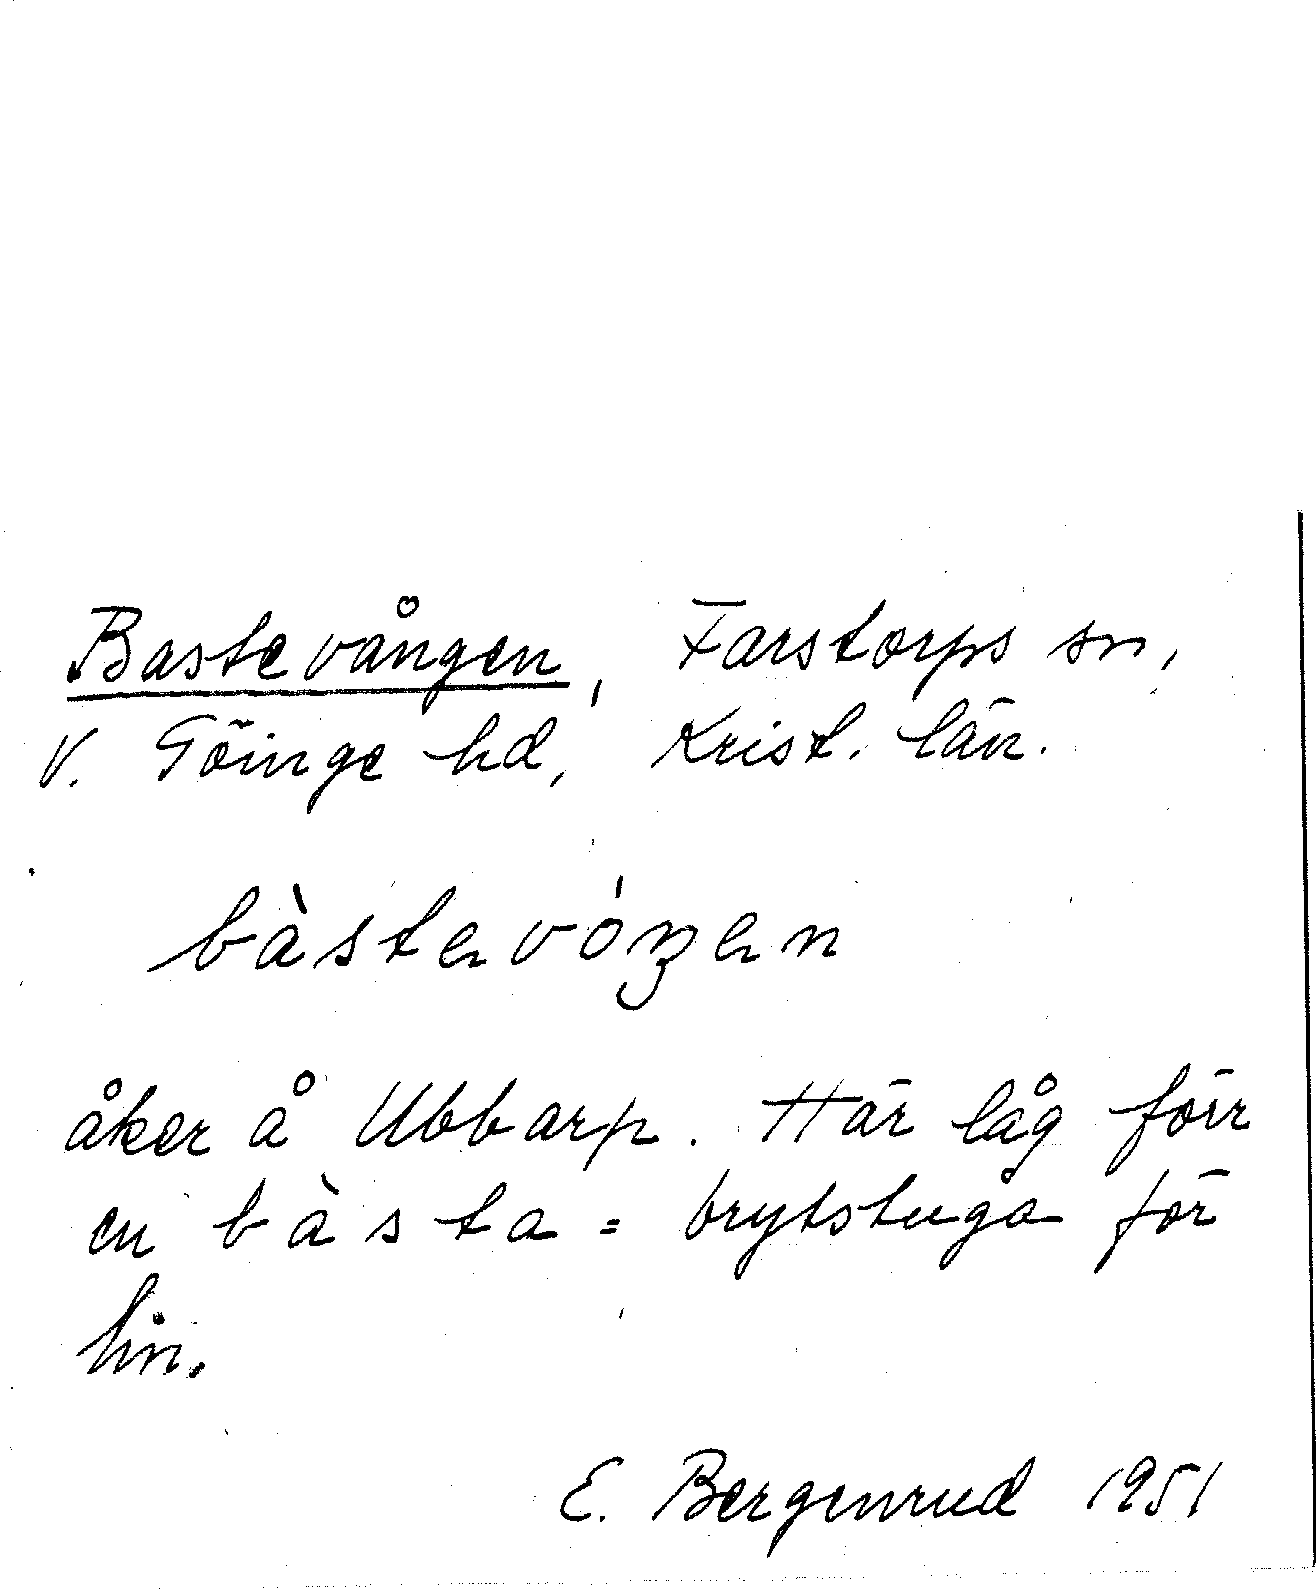 Bastevången, Farstorps sn,
V. Göinge hd, Krist. län.
bàstevóŋen
åker å Ubbarp. Här låg förr
en bàsta = brytstuga för
lin.
E. Bergenrud 1951